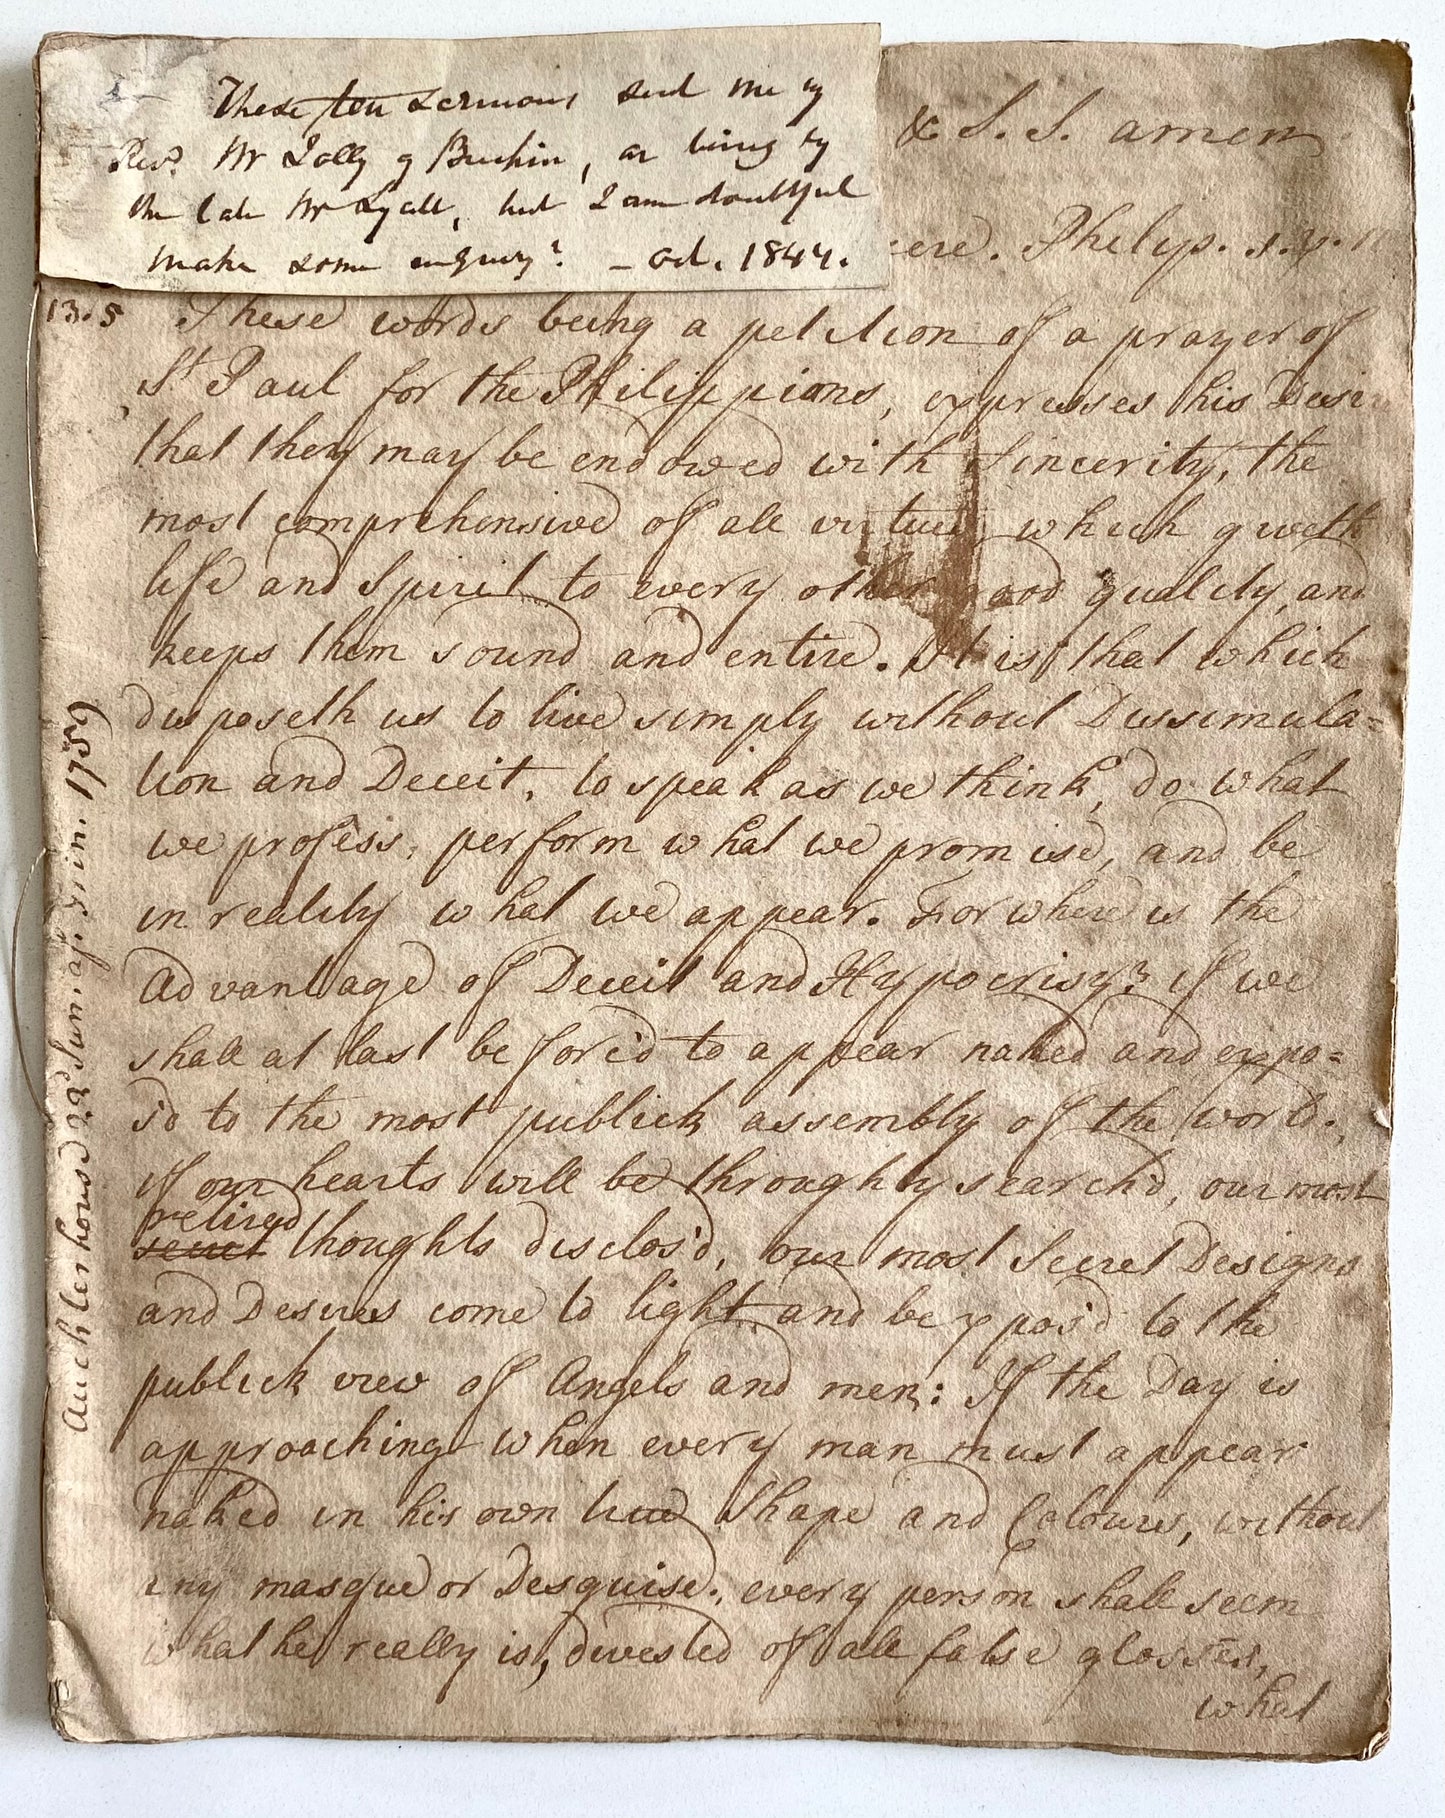 These ten sermons sent me by
Revd. Mr Jolly of Brechin, as being by
the late Mr Lyall, but I am doubtful
make some enquiry? – Oct. 1844.
& S. S. amen
cere. Philip. 1. 10
13.5 These words being a petition of a prayer of
St Paul for the Philippians, expresses his Desir
that they may be endowed with Sincerity, the
most comprehensive of all virtues which giveth
life and Spirit to every other good quality, and
keeps them sound and entire. It is that which
disposeth us to live simply without Dissimula=
tion and Deceit, to speak as we think, do what
we profess, perform what we promise, and be
in reality what we appear. For where is the
Advantage of Deceit and Hypocrisy? if we
shall at last be forc'd to appear naked and expo=
s'd to the most publick assembly of the world.,
if our hearts will be throughly search'd, our most
retired
secret thoughts disclos'd, our most Secret Designs
and Desires come to light and be expos'd to the
publick view of Angels and men: If the Day is
approaching when every man must appear
naked in his own true Shape and Colours, without
any masque or Desguise., every person shall seem
what he really is, divested of all false glosses,
what
Auchterhouse 22d Sun. af. Trin. 1759